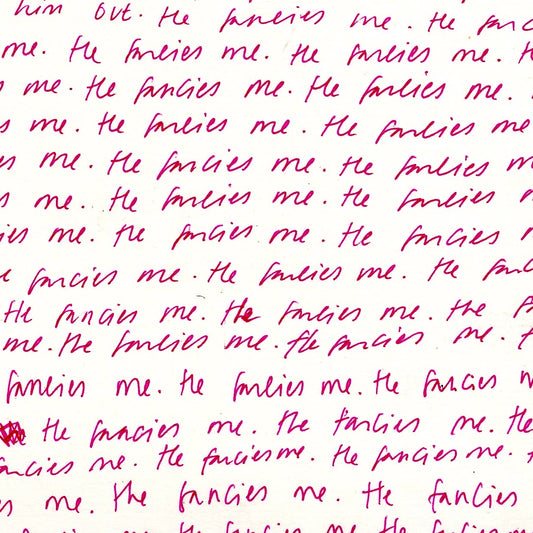 him out. He fancies me. He fanc
me. He fancies me. He fancies me. H
s me. He fancies me. He fancies me.
s me. He fancies me. He fancies me
es me. He fancies me. He fancies m
s me. He fancies me. He fancies
ies me. He fancies me. He fancies
e fancies me. He fancies me. He fanc
He fancies me. He fancies me. He f
me. He fancies me. He fancies me.
fancies me. He fancies me. He fancies m
He fancies me. He fancies me. He
fancies me. He fancies me. He fancies me.
es me. He fancies me. He fancies
fancies me. He fancies me. He fancies me